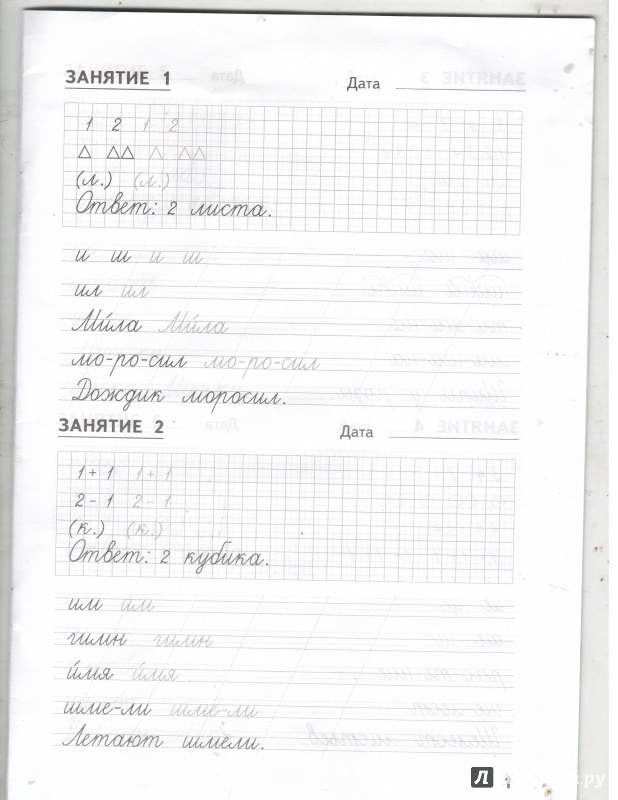 ЗАНЯТИЕ 1 Дата
1 2 1 2
(л.) (л.)
Ответ: 2 листа.
и ш и ш
ил ил
Ми́ла Ми́ла
мо-ро-сил мо-ро-сил
Дождик моросил.
ЗАНЯТИЕ 2 Дата
1 + 1 1 + 1
2 - 1 2 - 1
(к.) (к.)
Ответ: 2 кубика.
им им
гимн гимн
и́мя и́мя
шме-ли шме-ли
Летают шмели.
1